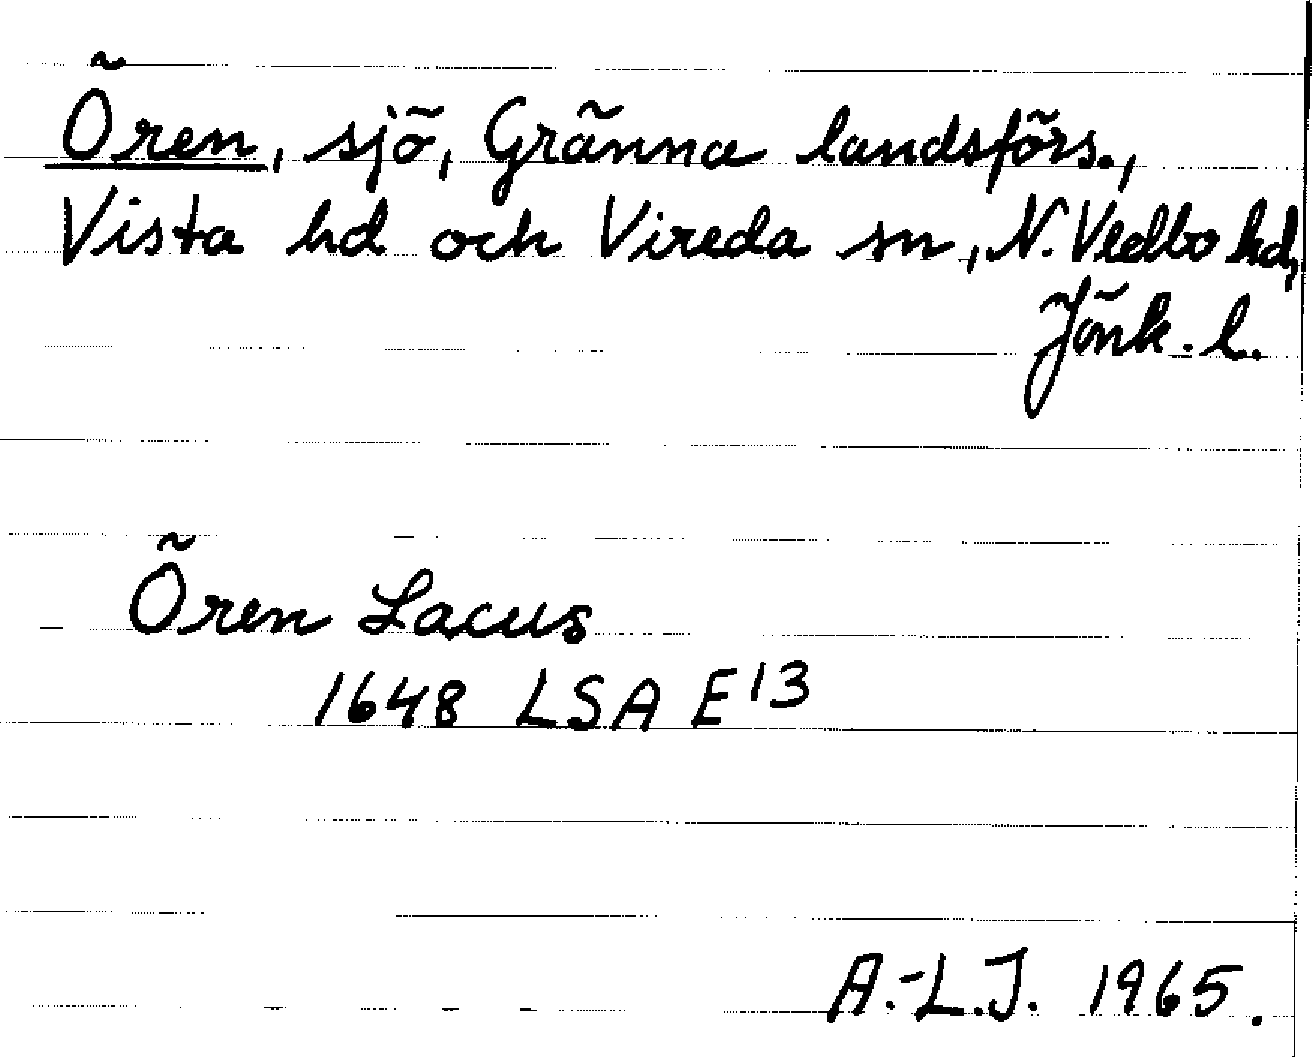 Ören, sjö, Gränna landsförs.,
Vista hd och Vireda sn, N. Vedbo hd,
Jönk. l.
Ören Lacus
1648 LSA E 13
A.-L.J. 1965.